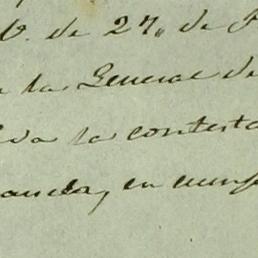 V. de 27, de
la General de
da la contesta
en cump